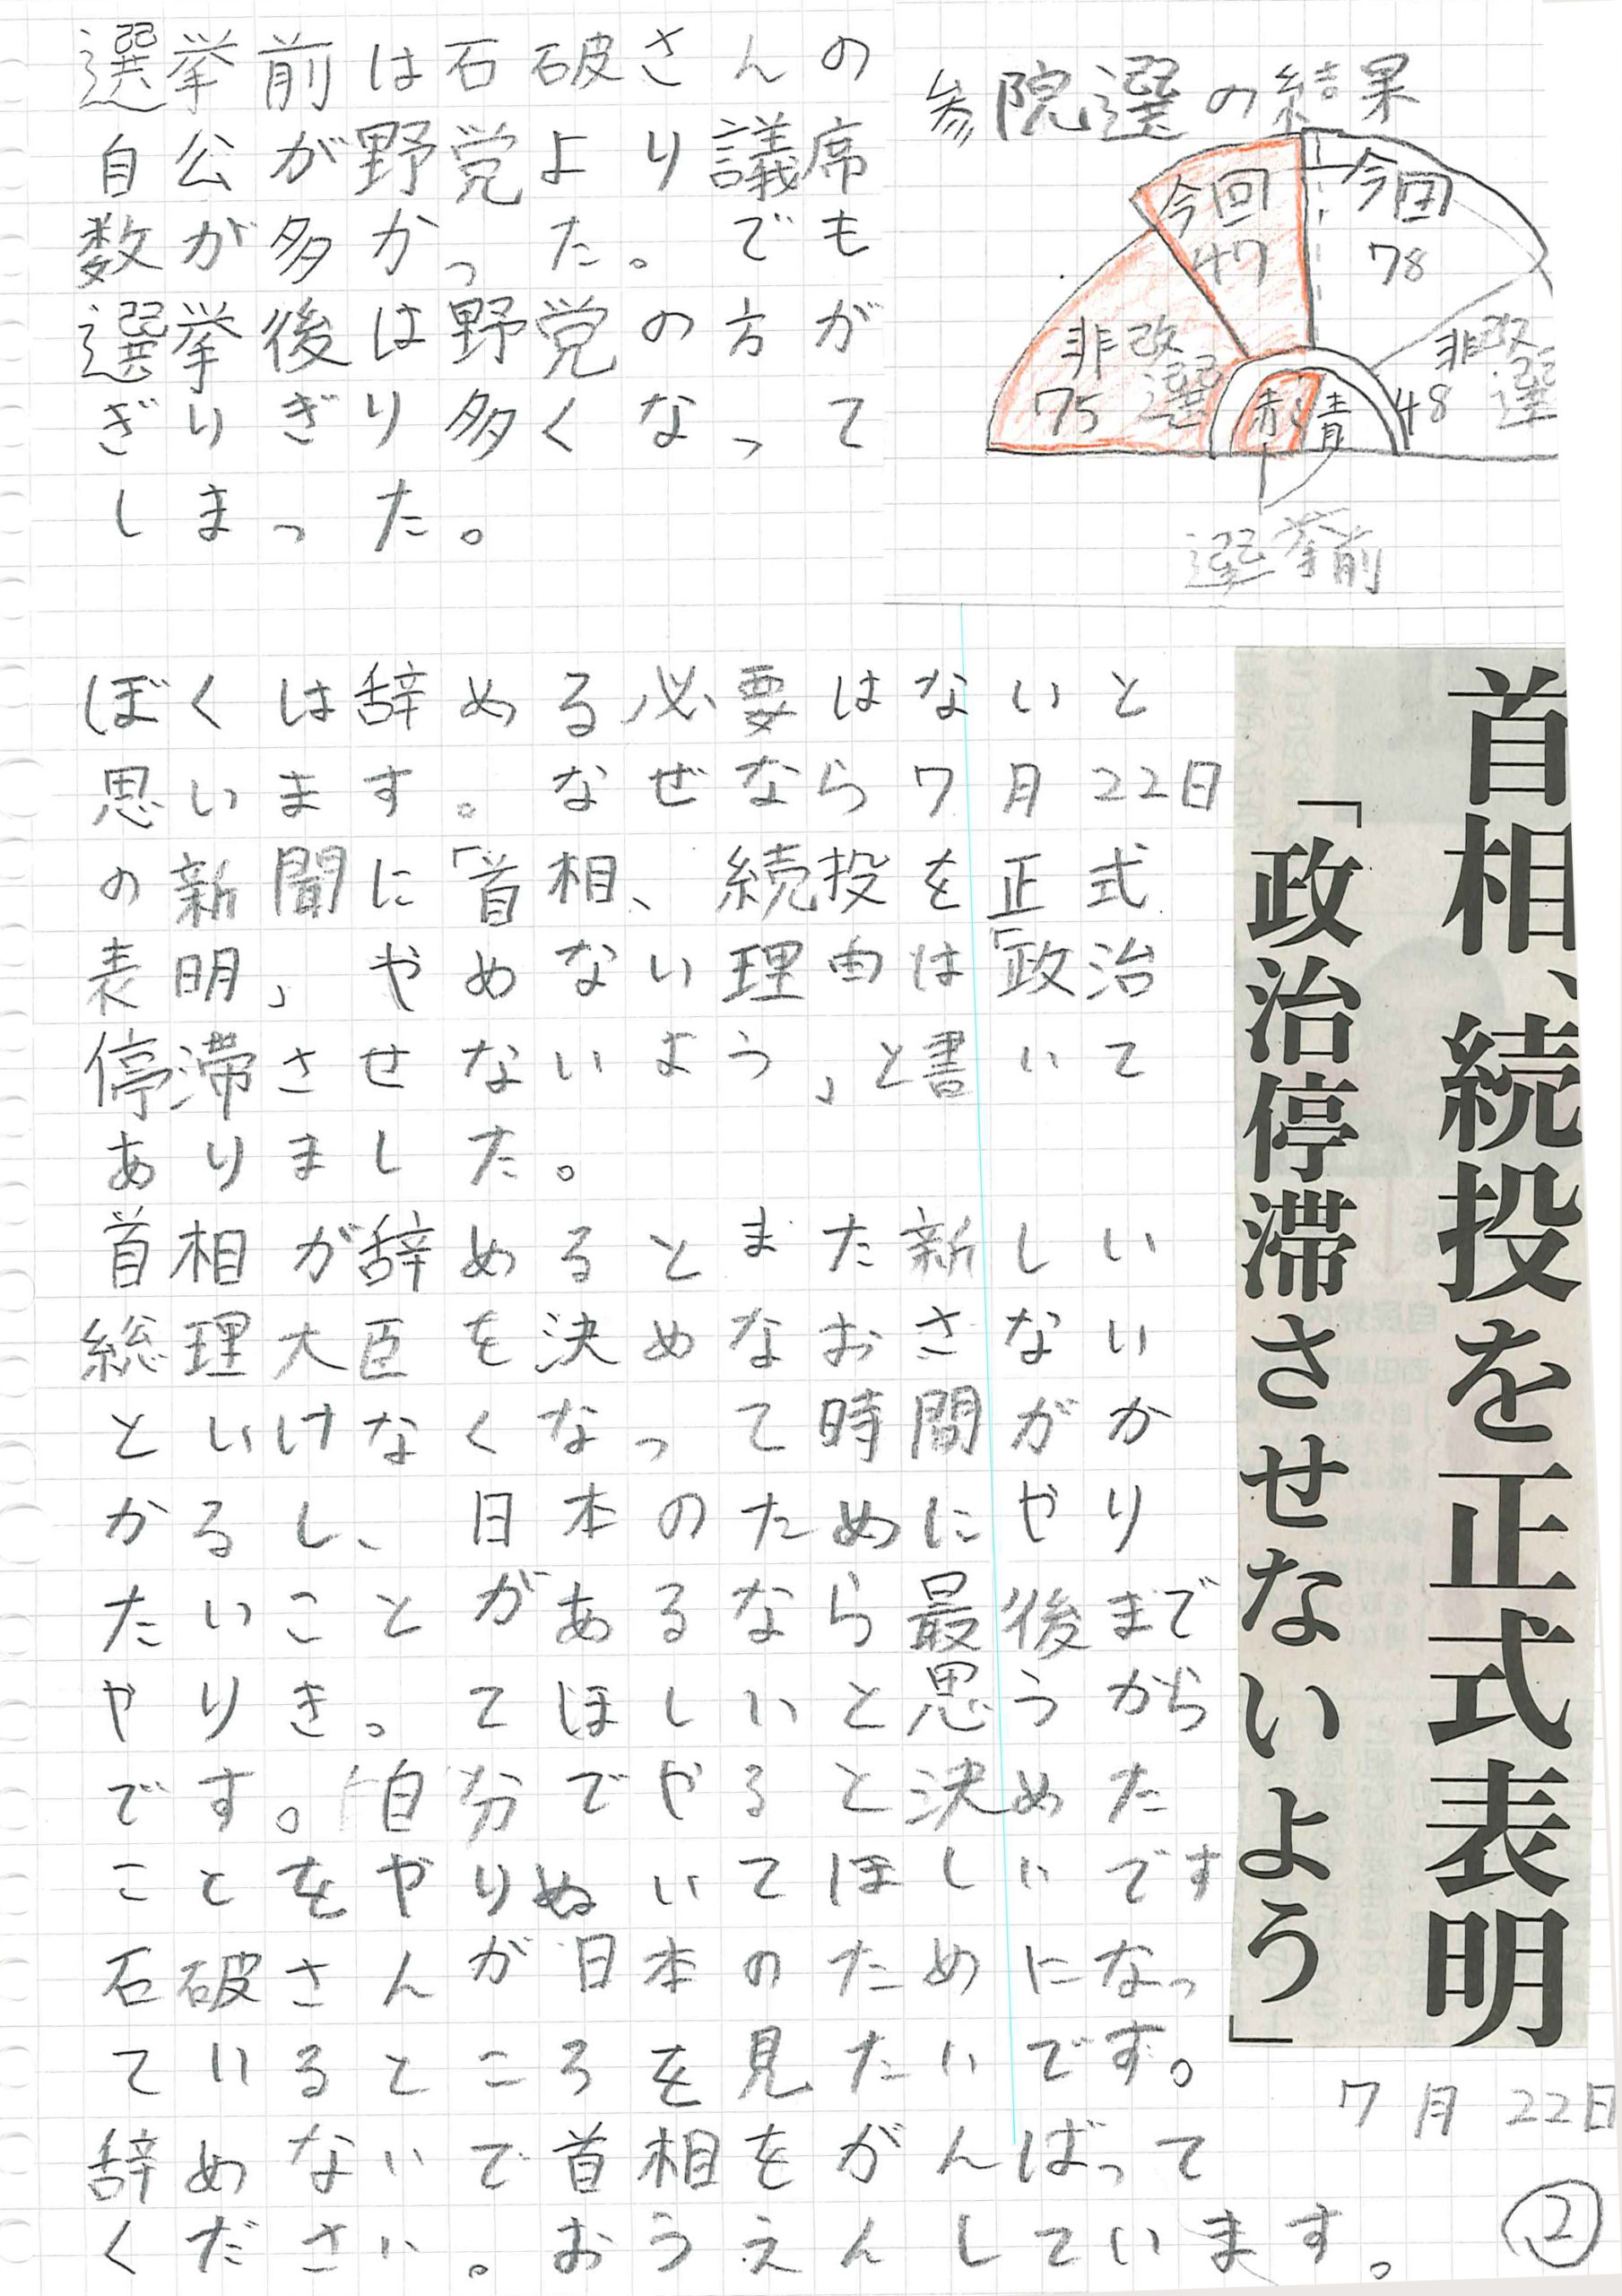 選挙前は石破さんの
自公が野党より議席
数が多かった。でも
選挙後は野党の方が
ぎりぎり多くなって
しまった。
参院選の結果
今回
47
今回
78
非改選
75
非改選
48
赤
青
選挙前
首相、続投を正式表明
「政治停滞させないよう」
7月22日
ぼくは辞める必要はないと
思います。なぜなら7月22日
の新聞に「首相、続投を正式
表明」やめない理由は「政治
停滞させないよう」と書いて
ありました。
首相が辞めるとまた新しい
総理大臣を決めなおさない
といけなくなって時間がか
かるし、日本のためにやり
たいことがあるなら最後まで
やりきってほしいと思うから
です。自分でやると決めた
ことをやりぬいてほしいです
石破さんが日本のためになっ
ているところを見たいです。
辞めないで首相をがんばって
ください。おうえんしています。
②